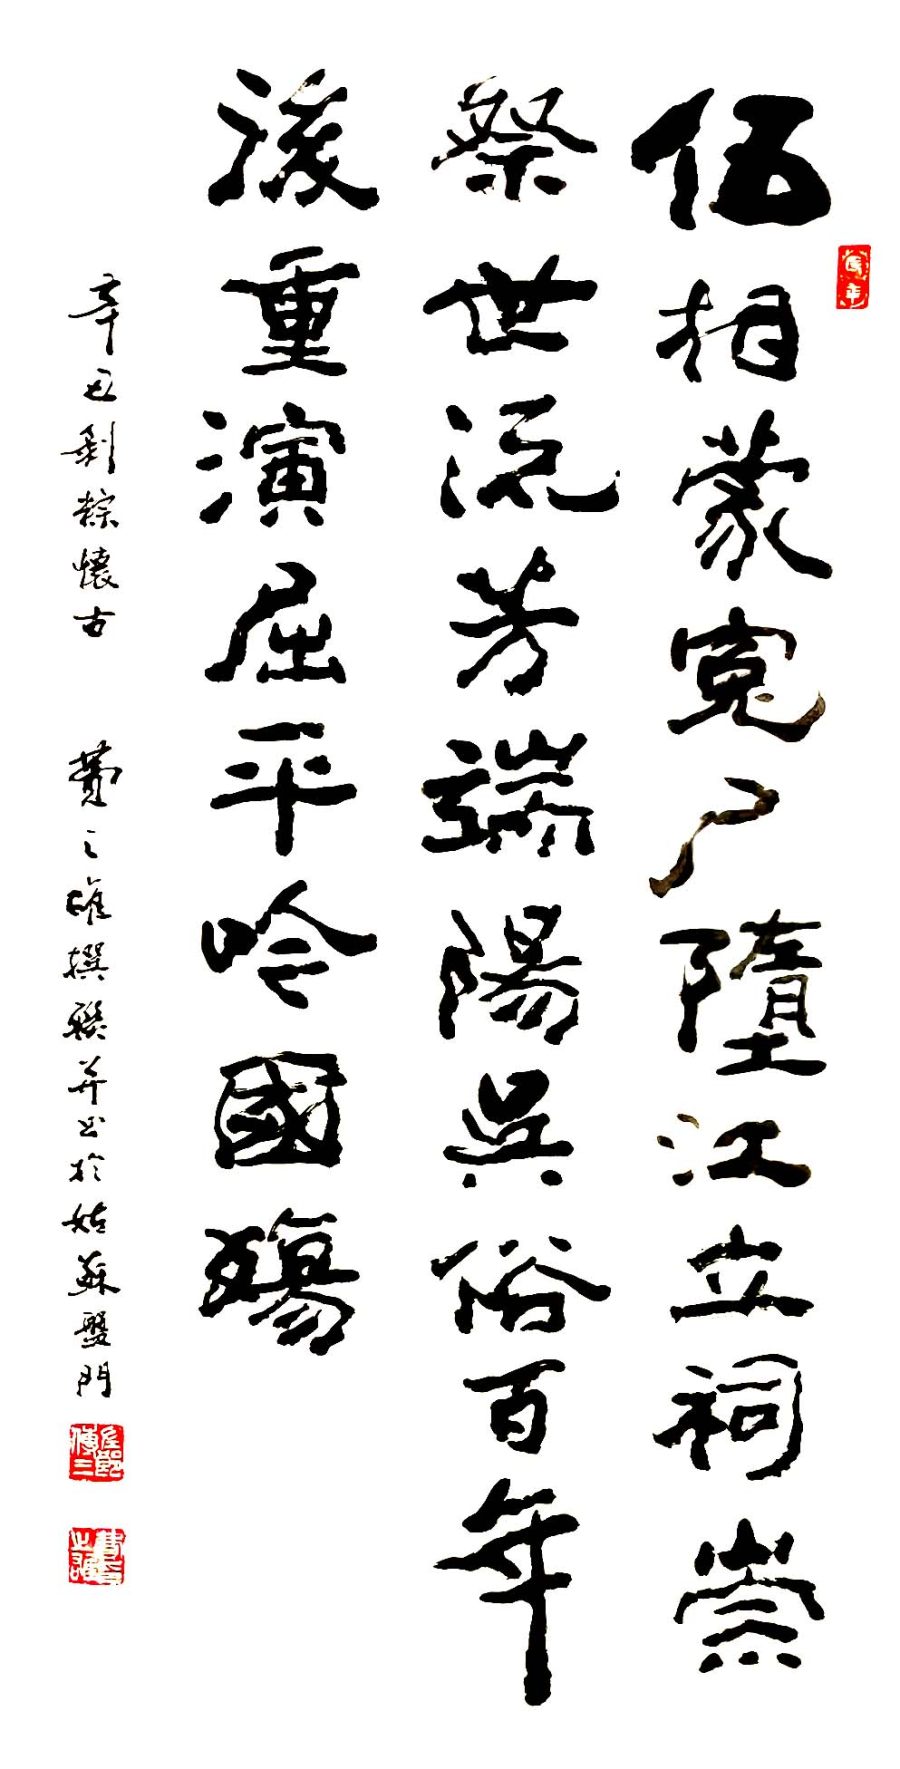 伍相蒙寃尸墮江立祠崇
祭世流芳端陽吳俗百年
後重演屈平吟國殤
辛丑剥粽懷古 費之雄撰聯并书於姑蘇盤門